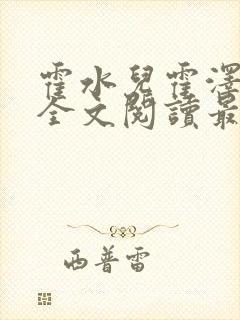 霍水兒霍澤
全文閱讀最
西普雷